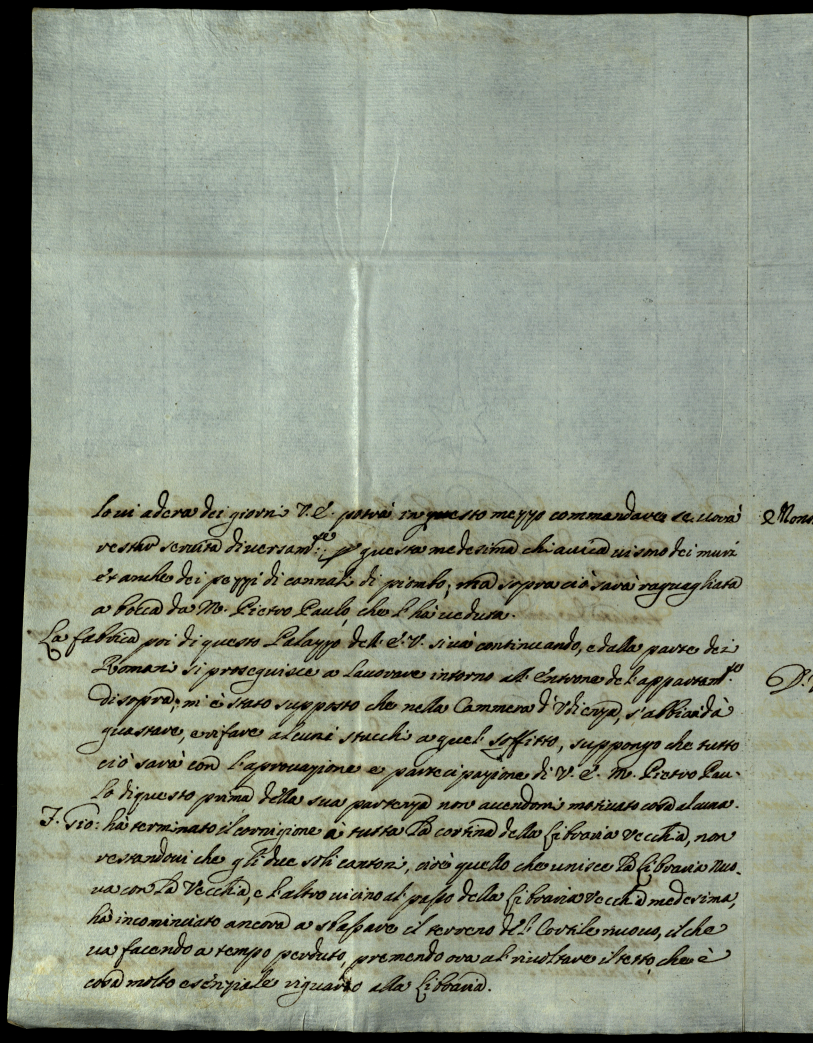 lo vi adera dei giorni V. E. potrà in questo mezzo commandare se vorà
restar servita diversam.te: p questa medesima chiavica vi sono dei muri
et anche dei pezzi di cannali di piombo, ma sopra ciò sarà raguagliata
a bocca da M. Pietro Paulo, che l'hà veduta.
La fabrica poi di questo Palazzo dell'E. V. si và continuando, e dalla parte dei
Romani si proseguisce a lavorare intorno all'Entrone dell'appartam.to
di sopra, m'è stato supposto che nella Cammera d'Udienza, s'abbia dà
guastare, e rifare alcuni stucchi a quel soffitto, suppongo che tutto
ciò sarà con l'aprovazione e partecipazione di V. E. M. Pietro Pau-
lo di questo prima della sua partenza non avendomi motivato cosa alcuna.
F. Gio: hà terminato il cornigione à tutta la cortina della Libraria Vecchia, non
restandovi che gli due soli cantoni, cioè quello che unisce la Libraria Nuo-
va con la Vecchia, e l'altro vicino al passo della Libraria Vecchia medesima,
hà incominciato ancora a sbassare il terreno del Cortile nuovo, il che
va facendo a tempo perduto, premendo ora al rivoltare il tetto, che è
cosa molto esenziale riguardo alla Libraria.
e Mons